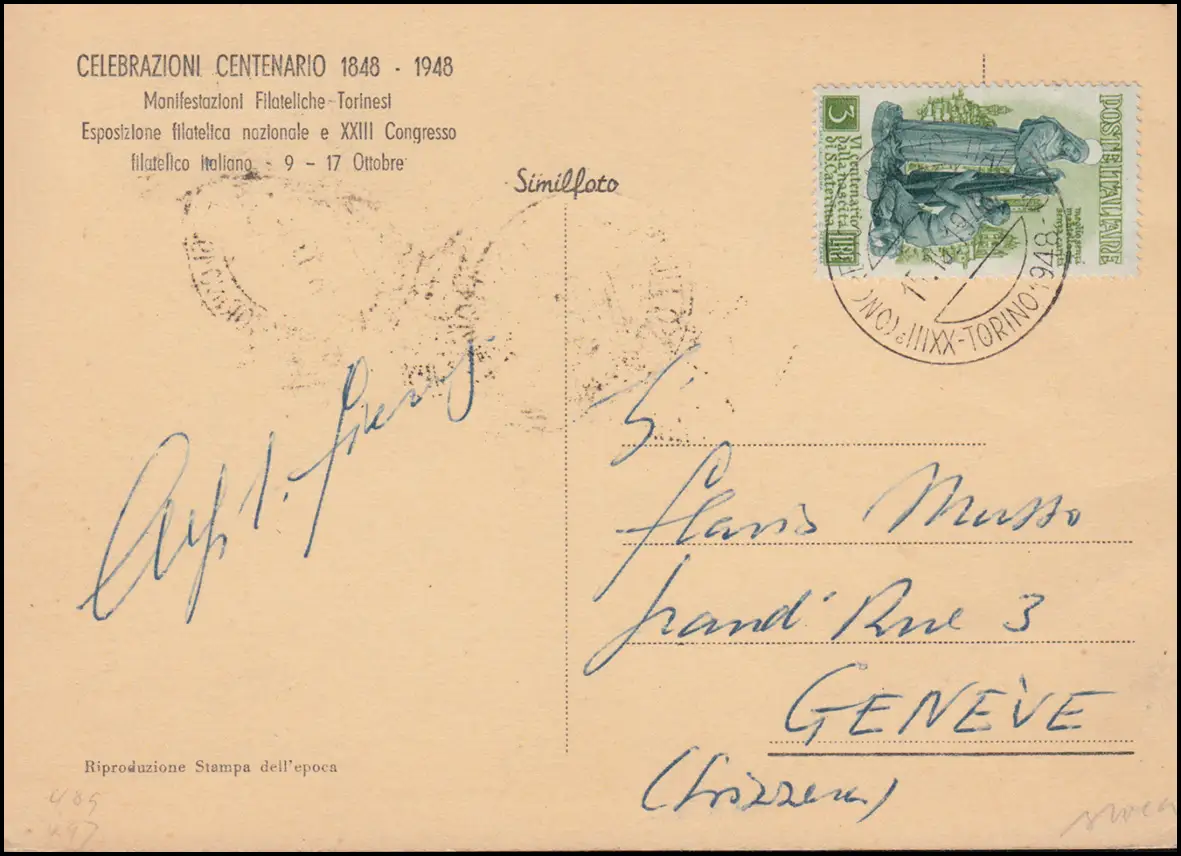 CELEBRAZIONI CENTENARIO 1848 - 1948
Manifestazioni Filateliche-Torinesi
Esposizione filatelica nazionale e XXIII Congresso
filatelico Italiano - 9 - 17 Ottobre
Similfoto
POSTE ITALIANE
3
VI centenario
della nascita
di S. Caterina
LIRE
XXIII° CONG
- TORINO 1948 -
S.
Flavio Musso
Grand' Rue 3
GENÈVE
(Svizzera)
Riproduzione Stampa dell'epoca
485